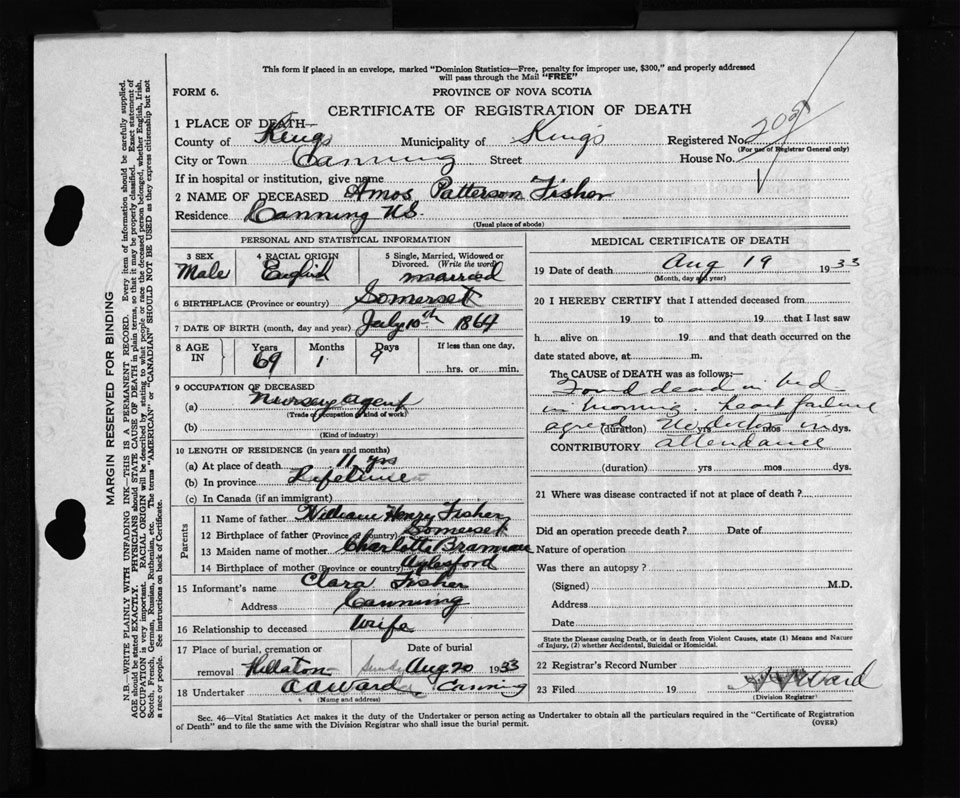 This form if placed in an envelope, marked "Dominion Statistics—Free, penalty for improper use, $300," and properly addressed
will pass through the Mail "FREE"
FORM 6. PROVINCE OF NOVA SCOTIA
CERTIFICATE OF REGISTRATION OF DEATH
1 PLACE OF DEATH
County of Kings Municipality of Kings Registered No.
(For use of Registrar General only)
City or Town Canning Street House No.
If in hospital or institution, give name
2 NAME OF DECEASED Amos Patterson Fisher
Residence Canning N.S.
(Usual place of abode)
PERSONAL AND STATISTICAL INFORMATION
3 SEX Male
4 RACIAL ORIGIN English
5 Single, Married, Widowed or Divorced. (Write the word) married
6 BIRTHPLACE (Province or country) Somerset
7 DATE OF BIRTH (month, day and year) July 10th 1864
8 AGE IN Years 69 Months 1 Days 9 If less than one day, hrs. or min.
9 OCCUPATION OF DECEASED
(a) Nursery agent
(Trade or occupation or kind of work)
(b)
(Kind of industry)
10 LENGTH OF RESIDENCE (in years and months)
(a) At place of death 11 yrs
(b) In province Lifetime
(c) In Canada (if an immigrant)
Parents
11 Name of father William Henry Fisher
12 Birthplace of father (Province or country) Somerset
13 Maiden name of mother Charlotte
14 Birthplace of mother (Province or country) Aylesford
15 Informant's name Clara Fisher
Address Canning
16 Relationship to deceased Wife
17 Place of burial, cremation or removal Hillaton Date of burial Sunday Aug 20 1933
18 Undertaker A A Ward Canning
(Name and address)
MEDICAL CERTIFICATE OF DEATH
19 Date of death Aug 19 1933
(Month, day and year)
20 I HEREBY CERTIFY that I attended deceased from
19 to 19 that I last saw
h alive on 19 and that death occurred on the
date stated above, at m.
The CAUSE of DEATH was as follows:
Found dead in bed
in morning. heart failure
agreed (duration) yrs mos dys. No doctor in
CONTRIBUTORY attendance
(duration) yrs mos dys.
21 Where was disease contracted if not at place of death?
Did an operation precede death? Date of
Nature of operation
Was there an autopsy?
(Signed) M.D.
Address
Date
State the Disease causing Death, or in death from Violent Causes, state (1) Means and Nature
of Injury, (2) whether Accidental, Suicidal or Homicidal.
22 Registrar's Record Number
23 Filed 19 Ward
(Division Registrar)
Sec. 46—Vital Statistics Act makes it the duty of the Undertaker or person acting as Undertaker to obtain all the particulars required in the "Certificate of Registration
of Death" and to file the same with the Division Registrar who shall issue the burial permit. (OVER)
MARGIN RESERVED FOR BINDING
N.B.—WRITE PLAINLY WITH UNFADING INK—THIS IS A PERMANENT RECORD. Every item of information should be carefully supplied.
AGE should be stated EXACTLY. PHYSICIANS should STATE CAUSE OF DEATH in plain terms, so that it may be properly classified. Exact statement of
OCCUPATION is very important. RACIAL ORIGIN will be described by stating to what people or race the deceased person belonged, whether English, Irish,
Scotch, French, German, Russian, Ruthenian, etc. The terms "AMERICAN" or "CANADIAN" SHOULD NOT BE USED as they express citizenship but not
a race or people. See instructions on back of Certificate.